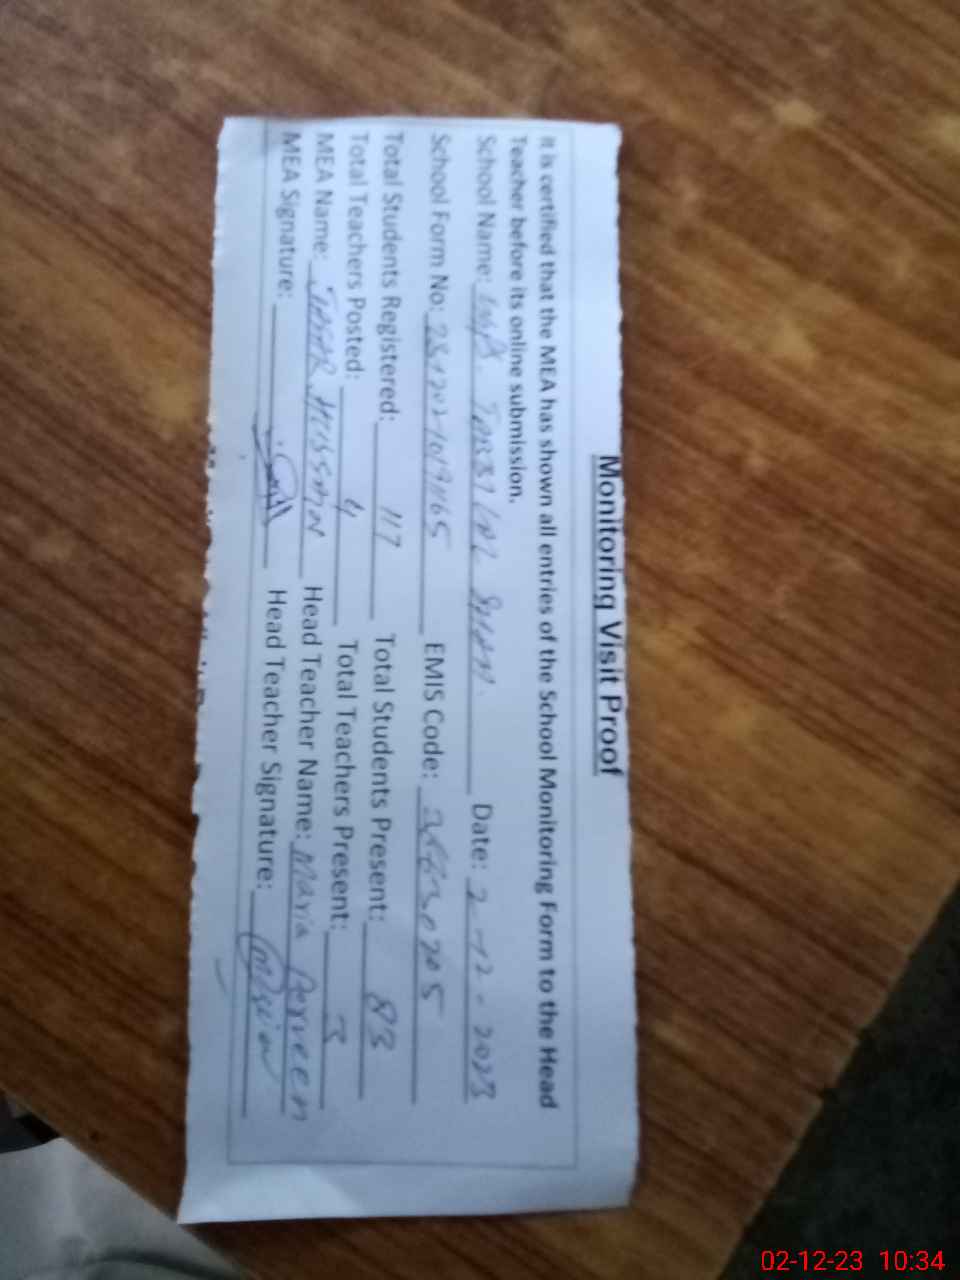 Monitoring Visit Proof
It is certified that the MEA has shown all entries of the School Monitoring Form to the Head
Teacher before its online submission.
School Name: Date: 2-12-2023
School Form No: EMIS Code:
Total Students Registered: 117 Total Students Present: 83
Total Teachers Posted: 4 Total Teachers Present: 3
MEA Name: HUSSAIN Head Teacher Name: Maria Perveen
MEA Signature: Head Teacher Signature: Maria
02-12-23 10:34